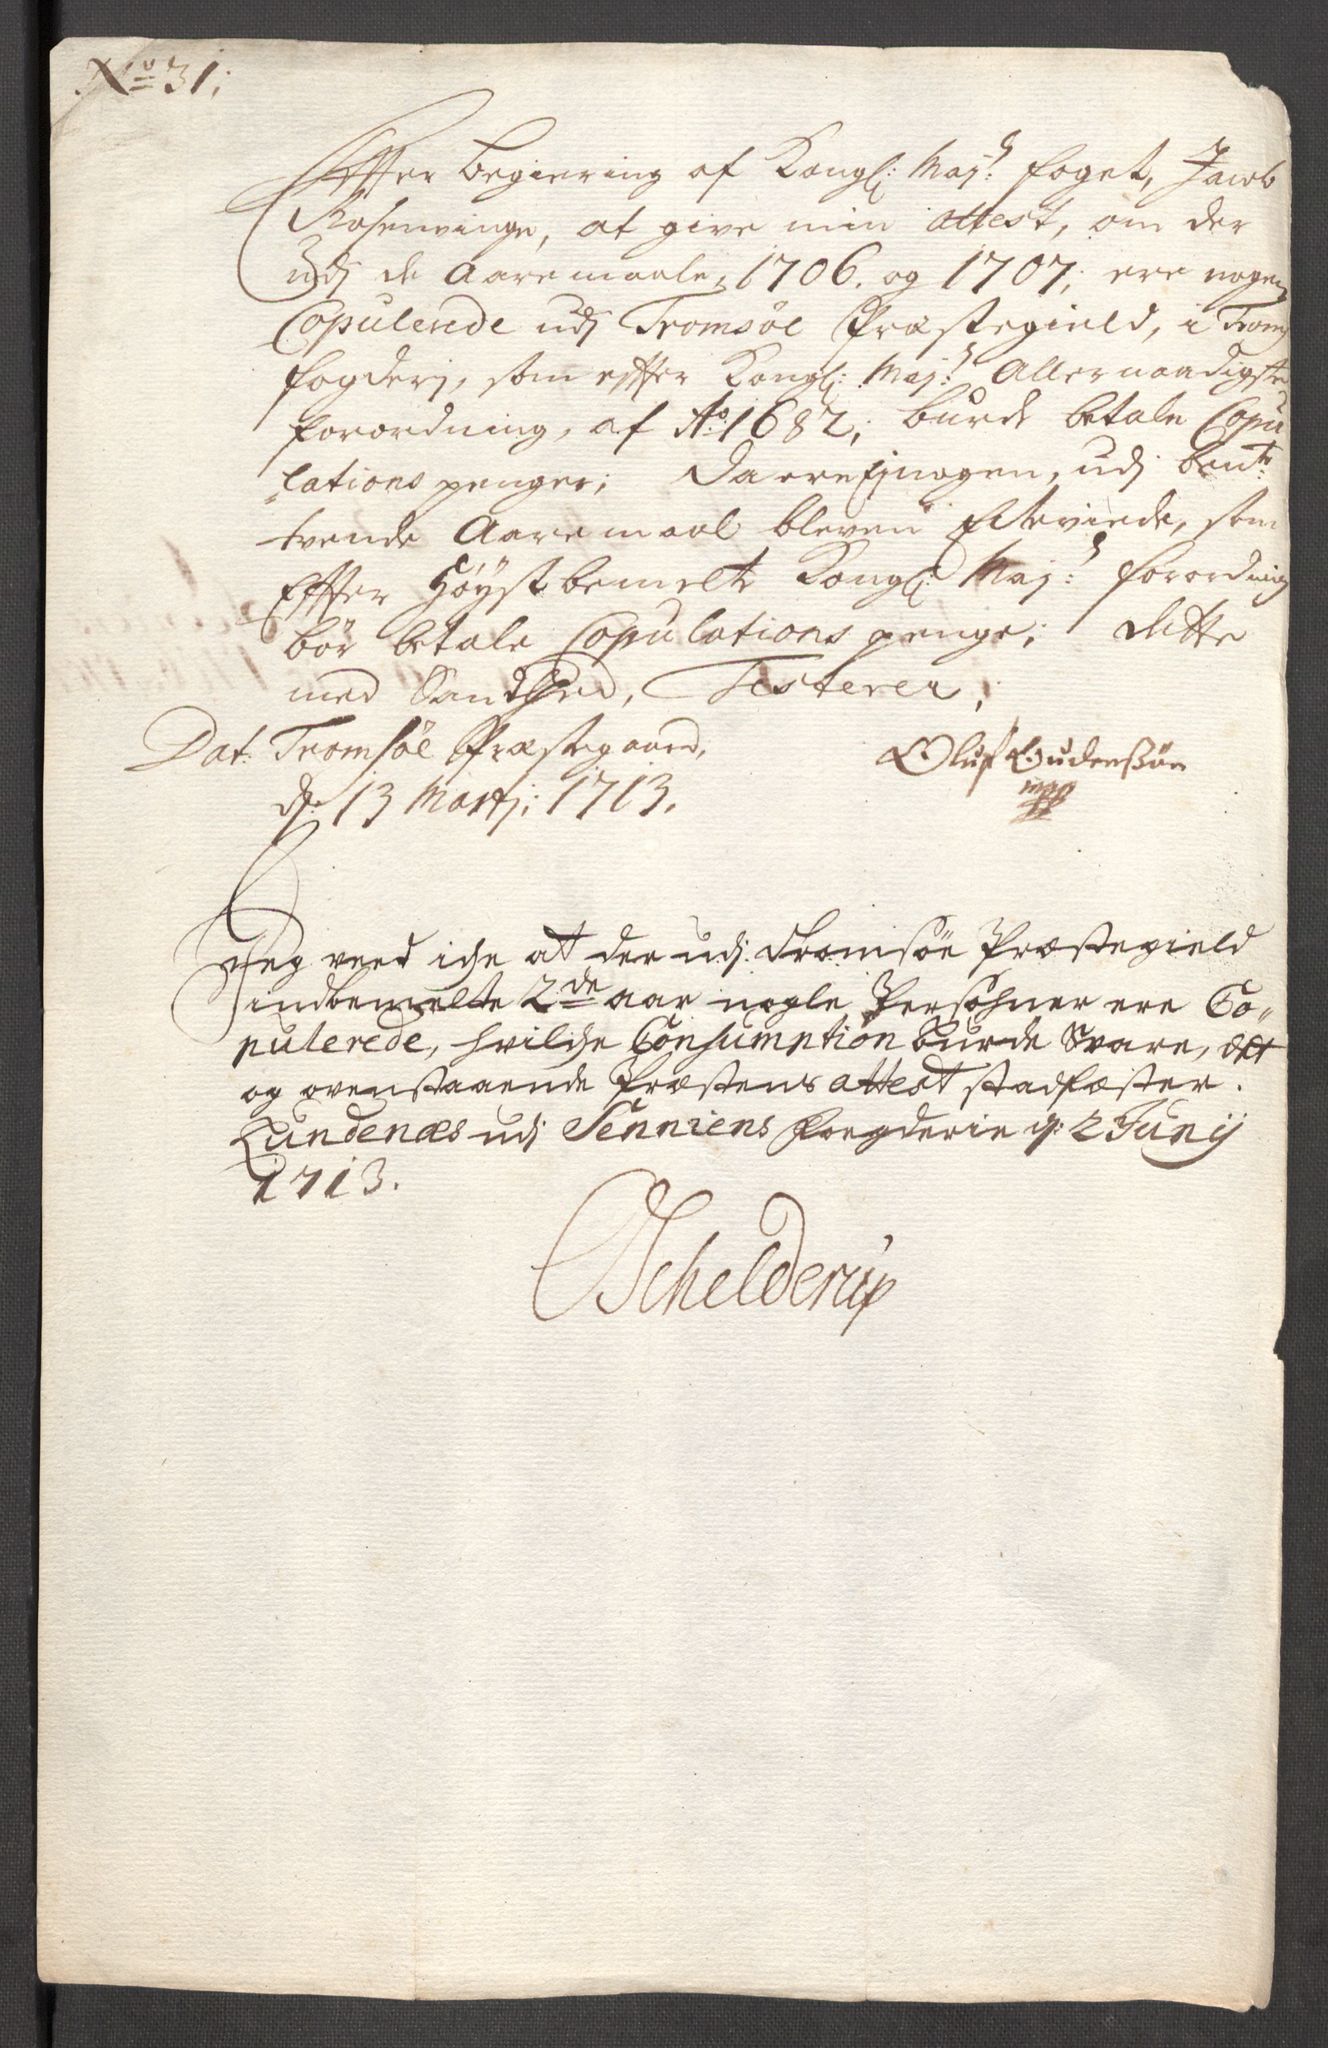 No 31;
Effter Begiering af Kongl: Mayts: foget, Jacob
Rosenvinge, at give min attest, om der
udj de Aaremaale, 1706. og 1707; ere nogen
Copulerede udj Tromsøe Præstegield, i Tromsø
fogderj, som effter Kongl: Mayts: Allernaadigste
forordning, af Ao 1682, burde betale Copu
lations penger; Da ere Ej nogen, udj bemte:
tvende Aaremaal bleven Ecteviede, som
Effter Høystbemelte Kongl: Mayts: forordning
bør betale Copulations penge; dette
med Sandhed, Testerer;
Dat: Tromsøe Præstegaard,
d: 13 Martj: 1713.
Oluf Gudenssøn
mpp
Jeg veed iche at der udj Tromsøe Præstegield
indbemelte 2de aar nogle Persohner ere Co-
pulerede, hvilche Consumption burde Svare, det
og ovenstaaende Præstens attest stadfæster.
Lundenæs udj Senniens Fogderie d: 2 Junij
1713.
Schelderup